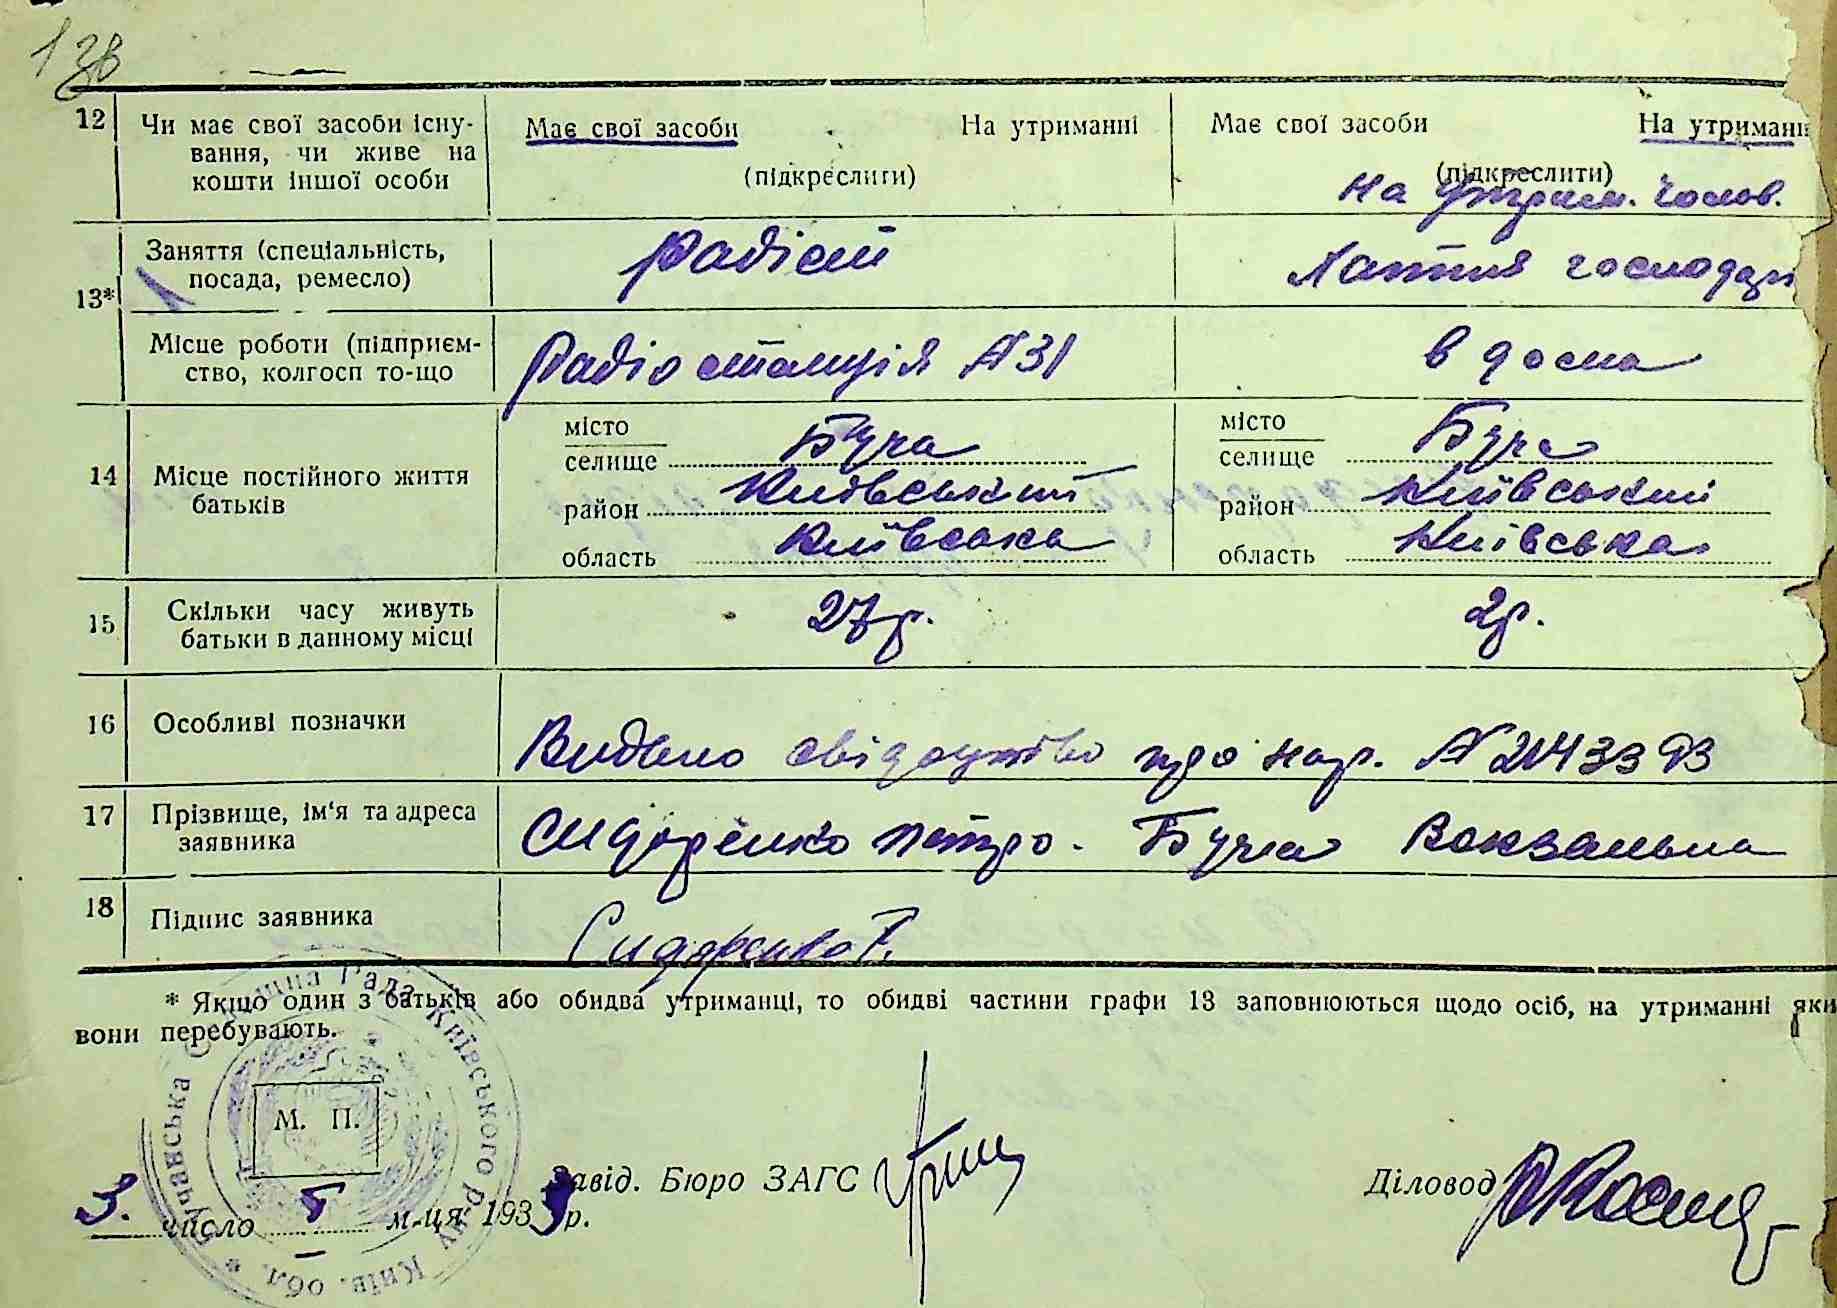 12 Чи має свої засоби існу-
вання, чи живе на
кошти іншої особи
Має свої засоби На утриманні
(підкреслити)
Має свої засоби На утриманн
(підкреслити)
на утрим. чолов.
13* Заняття (спеціальність,
посада, ремесло)
радіст
Хатня господар
Місце роботи (підприєм-
ство, колгосп то-що
Радіостанція №31
в дома
14 Місце постійного життя
батьків
місто
селище Буча
район Київський
область Київська
місто
селище Буча
район Київський
область Київська
15 Скільки часу живуть
батьки в данному місці
27р. 2р.
16 Особливі позначки
Видано свідоцтво про нар.
17 Прізвище, ім'я та адреса
заявника
Сидоренко Петро. Буча Вокзальна
18 Підпис заявника
Сидоренко П.
* Якщо один з батьків або обидва утриманці, то обидві частини графи 13 заповнюються щодо осіб, на утриманні яки
вони перебувають.
Бучанська Рада Київського р-ну Київ. обл. *
М. П.
3. число 5 м-ця 1939 р.
Завід. Бюро ЗАГС
Діловод